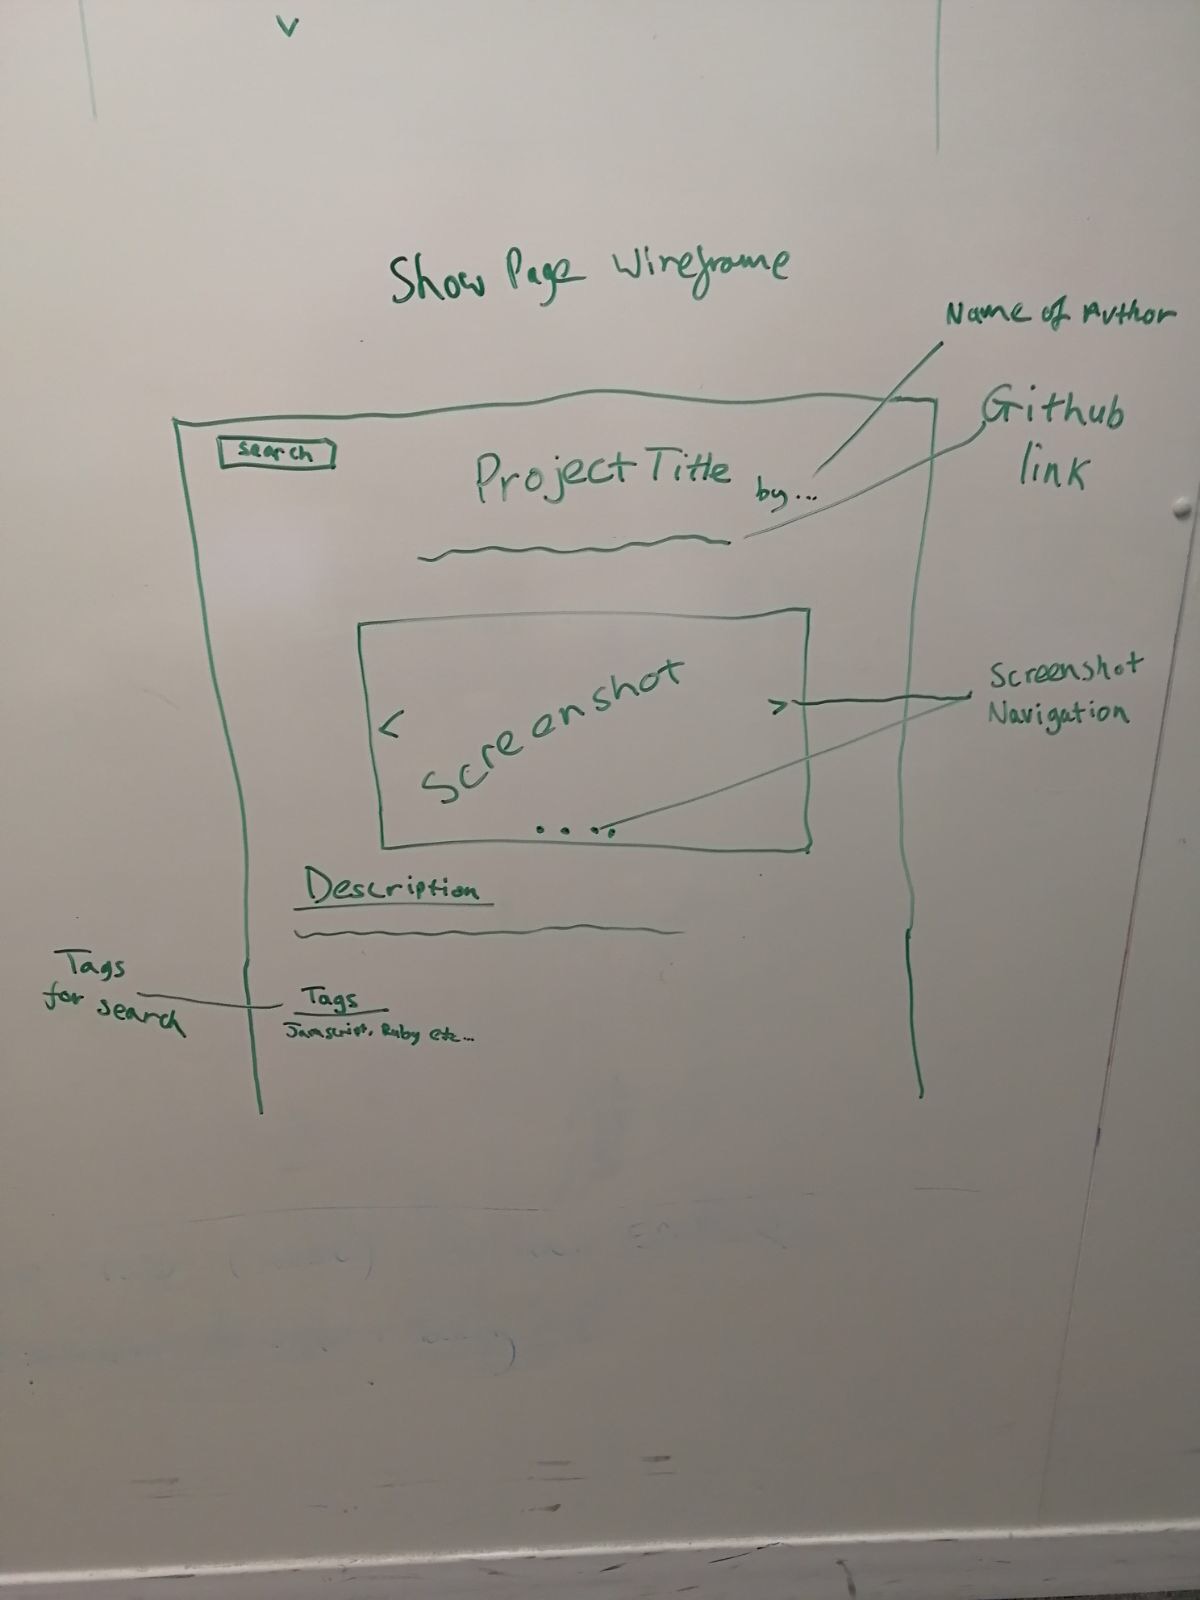 Show Page Wireframe
Name of Author
Github
link
search
Project Title by...
Screenshot
Navigation
<
Screenshot
>
Description
Tags
for search
Tags
Javascript, Ruby etc...